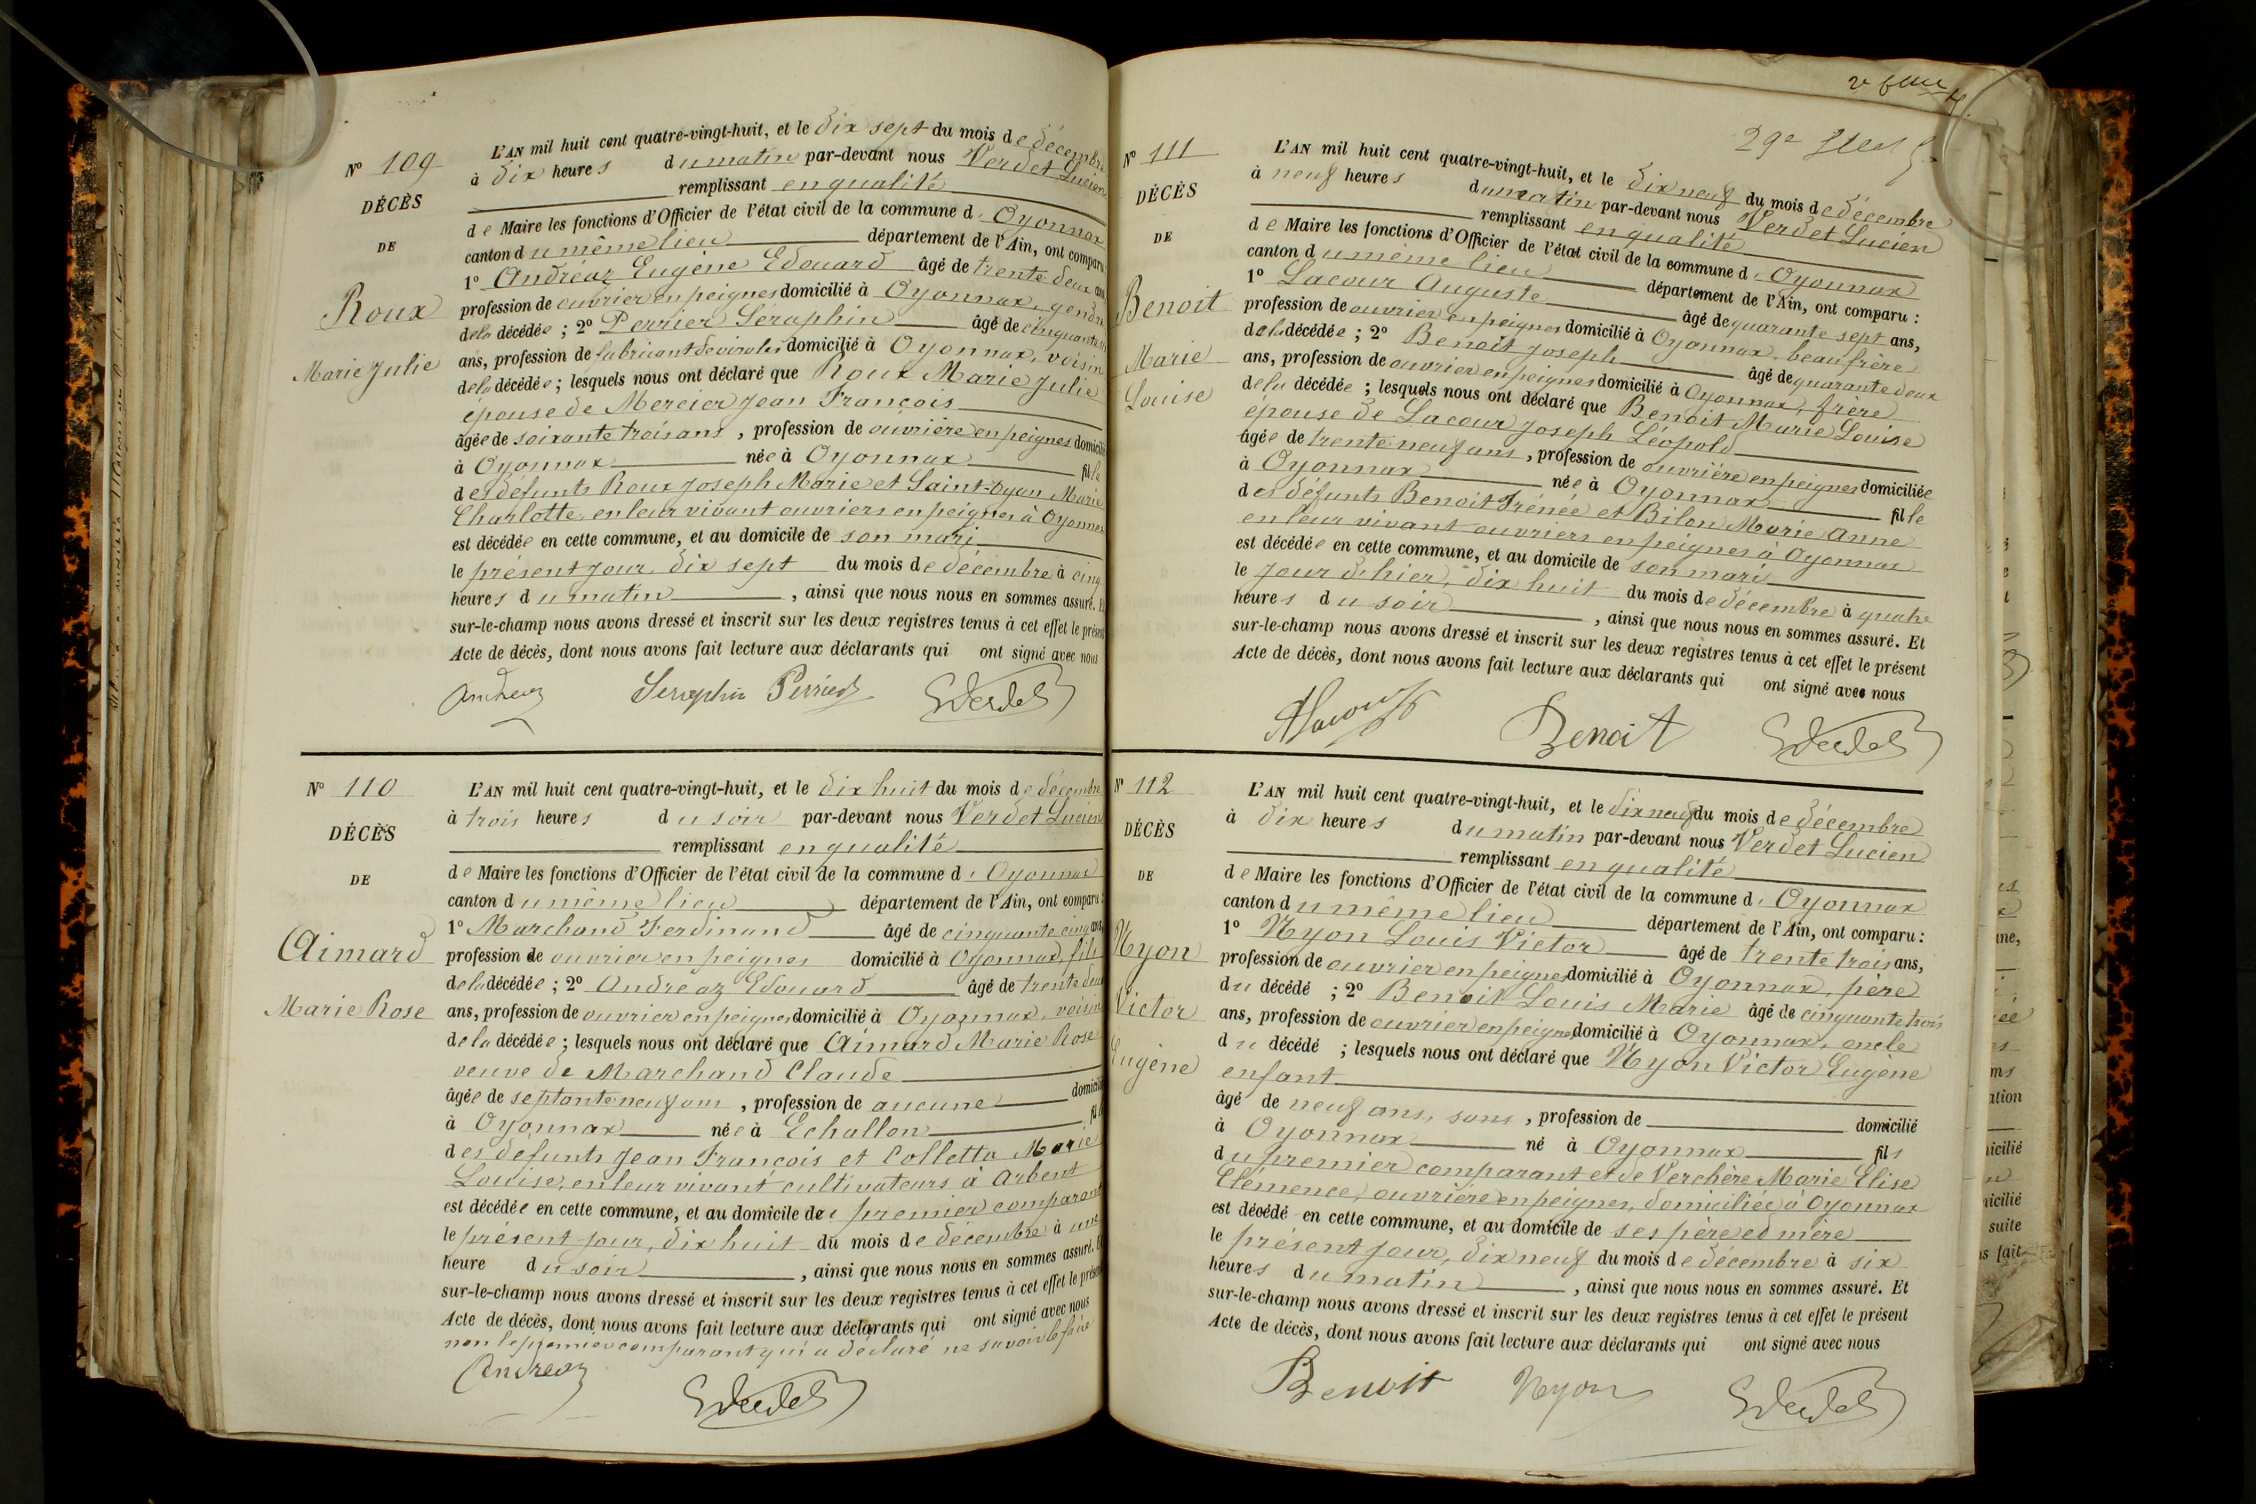 N° 109
DÉCÈS
DE
Roux
Marie Julie
L'AN mil huit cent quatre-vingt-huit, et le dix sept du mois de décembre
à dix heures du matin par-devant nous Verdet Lucien
remplissant en qualité
de Maire les fonctions d'Officier de l'état civil de la commune d'Oyonnax
canton du même lieu département de l'Ain, ont comparu :
1° Andréaz Eugène Edouard âgé de trente deux ans,
profession de ouvrier en peignes domicilié à Oyonnax, gendre
de la décédée ; 2° Perrier Séraphin âgé de cinquante
ans, profession de fabricant de viroles domicilié à Oyonnax, voisin
de la décédée ; lesquels nous ont déclaré que Roux Marie Julie
épouse de Mercier Jean François
âgée de soixante trois ans, profession de ouvrière en peignes domicilié
à Oyonnax née à Oyonnax fille
des défunts Roux Joseph Marie et Saint-Oyan Marie
Charlotte, en leur vivant ouvriers en peignes à Oyonnax
est décédée en cette commune, et au domicile de son mari
le présent jour, dix sept du mois de décembre à cinq
heures du matin, ainsi que nous nous en sommes assuré. Et
sur-le-champ nous avons dressé et inscrit sur les deux registres tenus à cet effet le présent
Acte de décès, dont nous avons fait lecture aux déclarants qui ont signé avec nous
Andreaz Seraphin Perrier Verdet
N° 110
DÉCÈS
DE
Aimard
Marie Rose
L'AN mil huit cent quatre-vingt-huit, et le dix huit du mois de décembre
à trois heures du soir par-devant nous Verdet Lucien
remplissant en qualité
de Maire les fonctions d'Officier de l'état civil de la commune d'Oyonnax
canton du même lieu département de l'Ain, ont comparu :
1° Marchand Ferdinand âgé de cinquante cinq ans,
profession de ouvrier en peignes domicilié à Oyonnax, fils
de la décédée ; 2° Andreaz Edouard âgé de trente deux
ans, profession de ouvrier en peignes domicilié à Oyonnax, voisin
de la décédée ; lesquels nous ont déclaré que Aimard Marie Rose
veuve de Marchand Claude
âgée de septante neuf ans, profession de aucune domicilié
à Oyonnax née à Echallon fille
des défunts Jean François et Colletta Marie
Louise, en leur vivant cultivateurs à Arbent
est décédée en cette commune, et au domicile de premier comparant
le présent jour, dix huit du mois de décembre à une
heure du soir, ainsi que nous nous en sommes assuré. Et
sur-le-champ nous avons dressé et inscrit sur les deux registres tenus à cet effet le présent
Acte de décès, dont nous avons fait lecture aux déclarants qui ont signé avec nous
non le premier comparant qui a déclaré ne savoir le faire
Andreaz Verdet
29e
N° 111
DÉCÈS
DE
Benoit
Marie
Louise
L'AN mil huit cent quatre-vingt-huit, et le dix neuf du mois de décembre
à neuf heures du matin par-devant nous Verdet Lucien
remplissant en qualité
de Maire les fonctions d'Officier de l'état civil de la commune d'Oyonnax
canton du même lieu département de l'Ain, ont comparu :
1° Lacour Auguste âgé de quarante sept ans,
profession de ouvrier en peignes domicilié à Oyonnax, beau frère
de la décédée ; 2° Benoit Joseph âgé de quarante deux
ans, profession de ouvrier en peignes domicilié à Oyonnax, frère
de la décédée ; lesquels nous ont déclaré que Benoit Marie Louise
épouse de Lacour Joseph Léopold
âgée de trente neuf ans, profession de ouvrière en peignes domiciliée
à Oyonnax née à Oyonnax fille
des défunts Benoit Irénée et Bilon Marie Anne
en leur vivant ouvriers en peignes à Oyonnax
est décédée en cette commune, et au domicile de son mari
le jour d'hier, dix huit du mois de décembre à quatre
heures du soir, ainsi que nous nous en sommes assuré. Et
sur-le-champ nous avons dressé et inscrit sur les deux registres tenus à cet effet le présent
Acte de décès, dont nous avons fait lecture aux déclarants qui ont signé avec nous
ALacour Benoit Verdet
N° 112
DÉCÈS
DE
Nyon
Victor
Eugène
L'AN mil huit cent quatre-vingt-huit, et le dix neuf du mois de décembre
à dix heures du matin par-devant nous Verdet Lucien
remplissant en qualité
de Maire les fonctions d'Officier de l'état civil de la commune d'Oyonnax
canton du même lieu département de l'Ain, ont comparu :
1° Nyon Louis Victor âgé de trente trois ans,
profession de ouvrier en peignes domicilié à Oyonnax, père
du décédé ; 2° Benoit Louis Marie âgé de cinquante trois
ans, profession de ouvrier en peignes domicilié à Oyonnax, oncle
du décédé ; lesquels nous ont déclaré que Nyon Victor Eugène
enfant
âgé de neuf ans, sans, profession de domicilié
à Oyonnax né à Oyonnax fils
du premier comparant et de Verchère Marie Elise
Clémence, ouvrière en peignes, domiciliée à Oyonnax
est décédé en cette commune, et au domicile de ses père et mère
le présent jour, dix neuf du mois de décembre à six
heures du matin, ainsi que nous nous en sommes assuré. Et
sur-le-champ nous avons dressé et inscrit sur les deux registres tenus à cet effet le présent
Acte de décès, dont nous avons fait lecture aux déclarants qui ont signé avec nous
Benoit Nyon Verdet